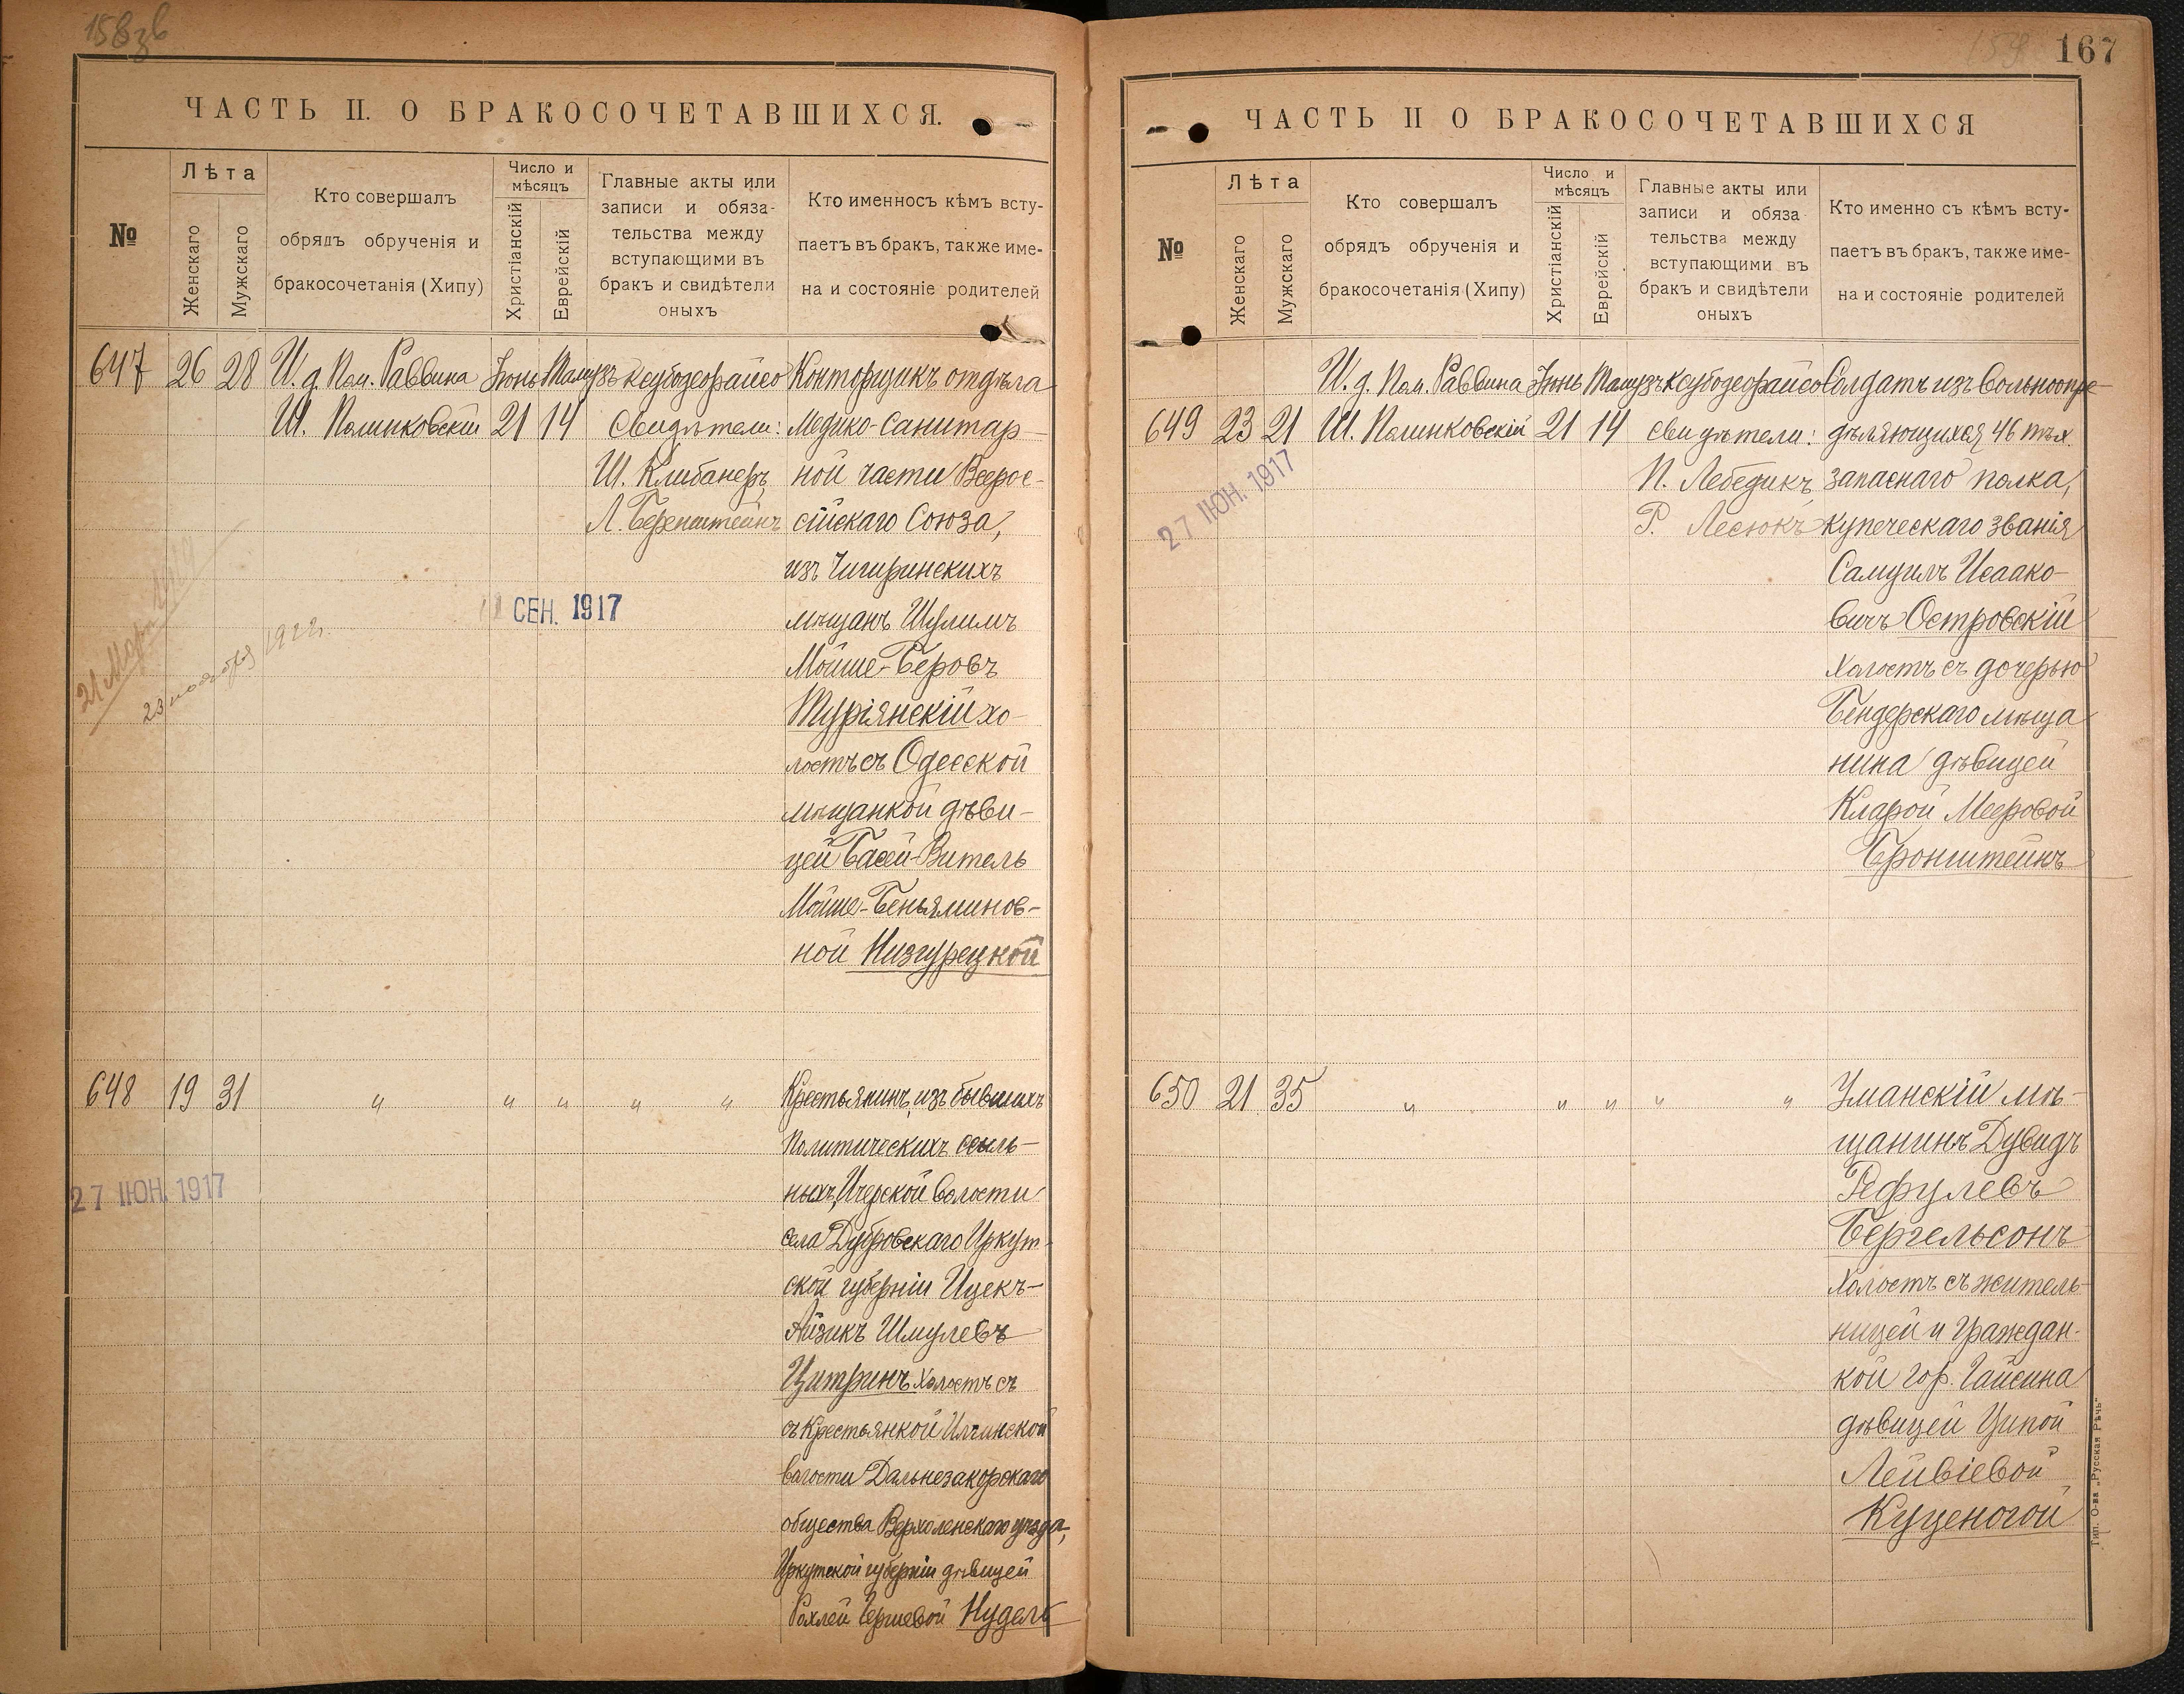 ЧАСТЬ II. О БРАКОСОЧЕТАВШИХСЯ.
№
Лѣта
Женскаго
Мужскаго
Кто совершалъ
обрядъ обрученія и
бракосочетанія (Хипу)
Число и
мѣсяцъ
Христіанскій
Еврейскій
Главные акты или
записи и обяза-
тельства между
вступающими въ
бракъ и свидѣтели
оныхъ
Кто именносъ кѣмъ всту-
паетъ въ бракъ, также име-
на и состояніе родителей
647 26 28 И. д. Пом. Раввина Іюнь Тамузъ Ксубодеорайсо
Ш. Полинковскій 21 14 Свидѣтели:
Ш. Клибанеръ
Л. Беренштейнъ
Конторщикъ отдѣла
Медико-Санитар-
ной части Всерос-
сійскаго Союза,
изъ Чигиринскихъ
мѣщанъ Шулимъ
Мойше-Беровъ
Туріянскій хо-
лостъ съ Одесской
мѣщанкой дѣви-
цей Басей-Витель
Мойше-Беньяминов-
ной Низгурецкой
СЕН. 1917
23 ноября 1922 г.
648 19 31 " " " " "
27 ІЮН. 1917
Крестьянинъ, изъ бывшихъ
Политическихъ ссыль-
ныхъ, Ичерской волости
села Дубровскаго Иркут-
ской губерніи Ицекъ-
Айзикъ Шмулевъ
Цитринъ холостъ съ
съ Крестьянкой Илгинской
волости Дальнезакорскаго
общества Верхоленскаго уѣзда,
Иркутской губерніи дѣвицей
Рохлей Гершевой Нудель
167
ЧАСТЬ II О БРАКОСОЧЕТАВШИХСЯ
№
Лѣта
Женскаго
Мужскаго
Кто совершалъ
обрядъ обрученія и
бракосочетанія (Хипу)
Число и
мѣсяцъ
Христіанскій
Еврейскій
Главные акты или
записи и обяза-
тельства между
вступающими въ
бракъ и свидѣтели
оныхъ
Кто именно съ кѣмъ всту-
паетъ въ бракъ, также име-
на и состояніе родителей
И. д. Пом. Раввина Іюнь Тамузъ Ксубодеорайсо
649 23 21 Ш. Полинковскій 21 14 свидѣтели:
П. Лебедикъ
Р. Лесюкъ
27 ІЮН. 1917
Солдатъ изъ вольноопре-
дѣляющихся 46 пѣх.
запаснаго полка,
купеческаго званія
Самуилъ Исаако-
вичъ Островскій
холостъ съ дочерью
Бендерскаго мѣща
нина дѣвицей
Кларой Мееровой
Бронштейнъ
650 21 35 " " " " "
Уманскій мѣ-
щанинъ Дувидъ
Рефулевъ
Бергельсонъ
холостъ съ житель-
ницей и граждан-
кой гор. Гайсина
дѣвицей Ципой
Лейвіевой
Куценогой
Тип. О-ва „Русская Рѣчь"